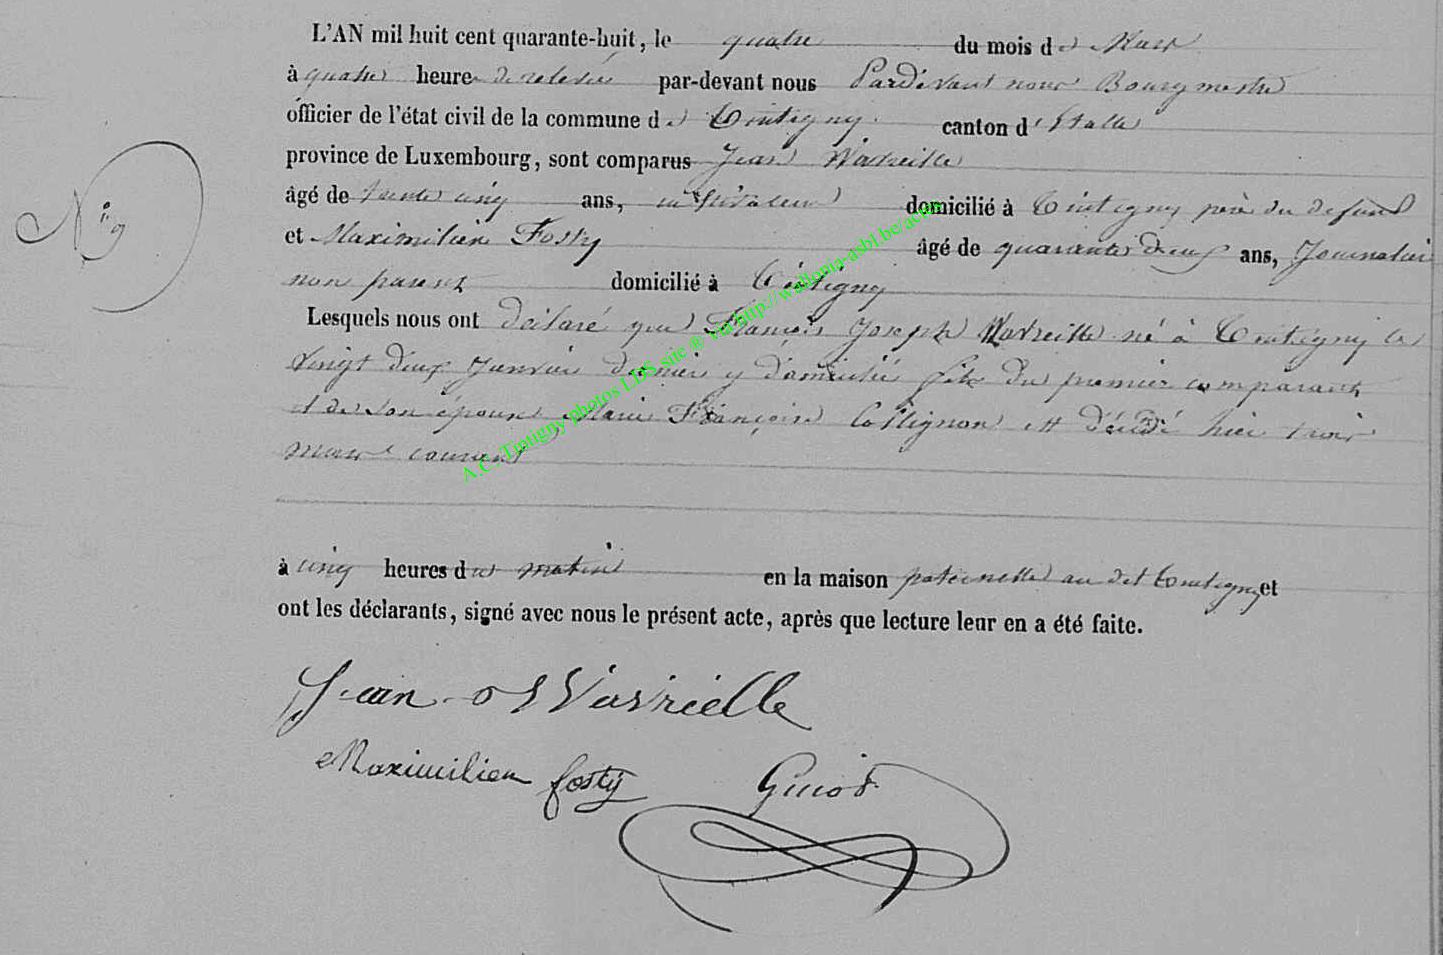 L'AN mil huit cent quarante-huit, le quatre du mois de Mars
à quatre heure de relevée par-devant nous Pardevant nous Bourgmestre
officier de l'état civil de la commune de Tintigny canton d'Etalle
province de Luxembourg, sont comparus Jean Wavreille
âgé de trente cinq ans, cultivateur domicilié à Tintigny père du defunt
N° 9
et Maximilien Fosty âgé de quarante deux ans, Journalier
non parent domicilié à Tintigny
Lesquels nous ont déclaré que François Joseph Wavreille né à Tintigny le
vingt deux Janvier dernier y domicilié fils du premier comparant
et de son épouse Marie Françoise Collignon est décédé hier trois
mars courant
à cinq heures du matin en la maison paternelle au dit Tintigny et
ont les déclarants, signé avec nous le présent acte, après que lecture leur en a été faite.
Jean Wavrielle
Maximilien fosty Guiot
A.C. Tintigny photos LDS site ® via http://wallonia-asbl.be/actes